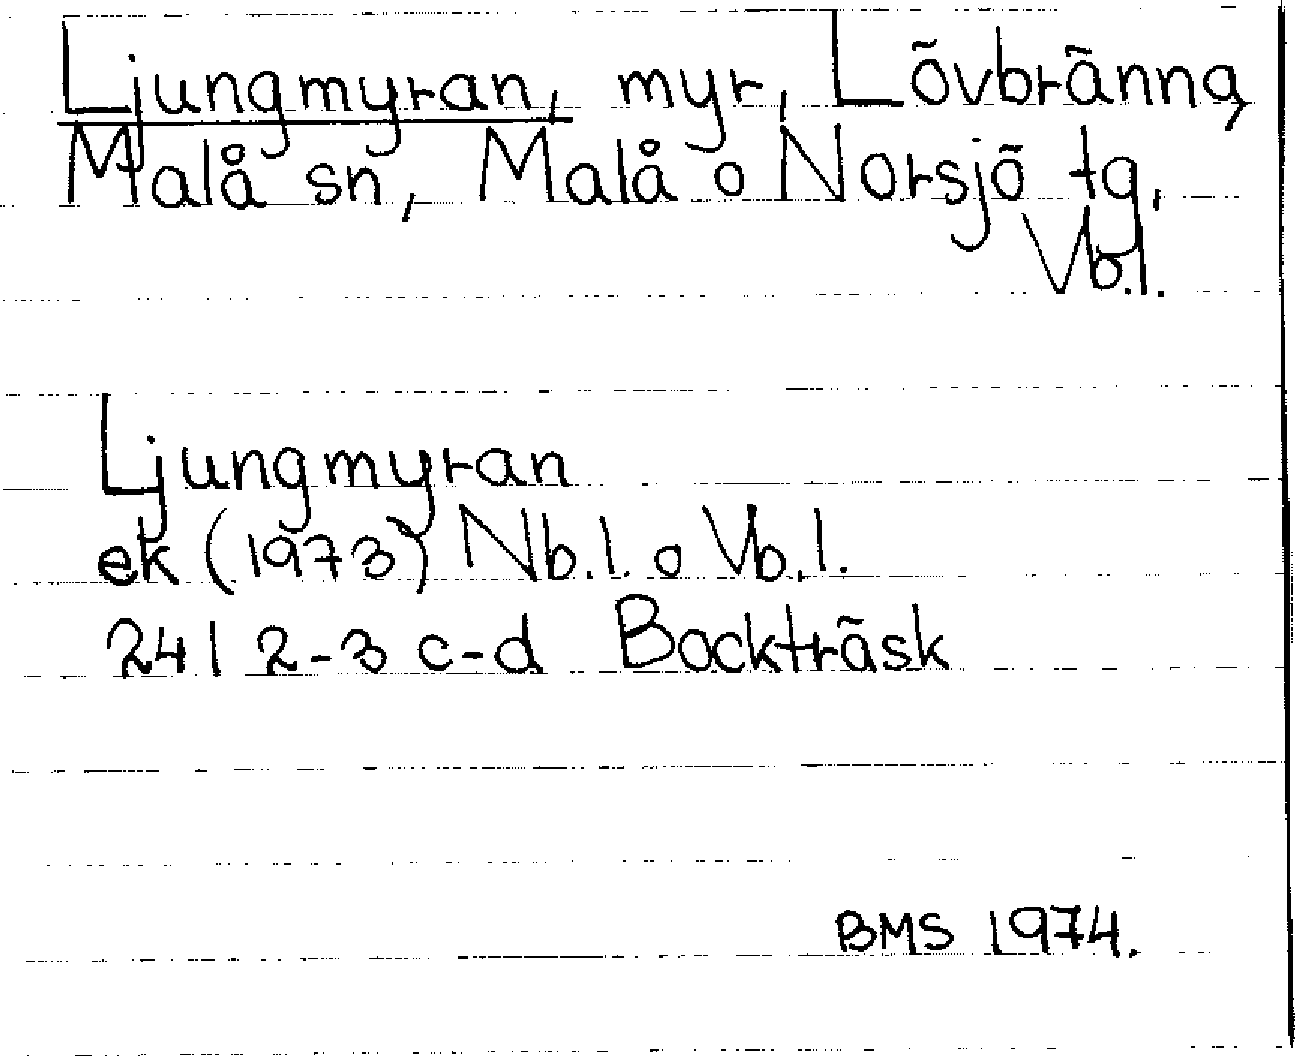 Ljungmyran, myr, Lövbränna,
Malå sn, Malå o Norsjö tg,
Vb.l.
Ljungmyran
ek (1973) Nb.l. o Vb.l.
24 I 2-3 c-d Bockträsk
BMS 1974.